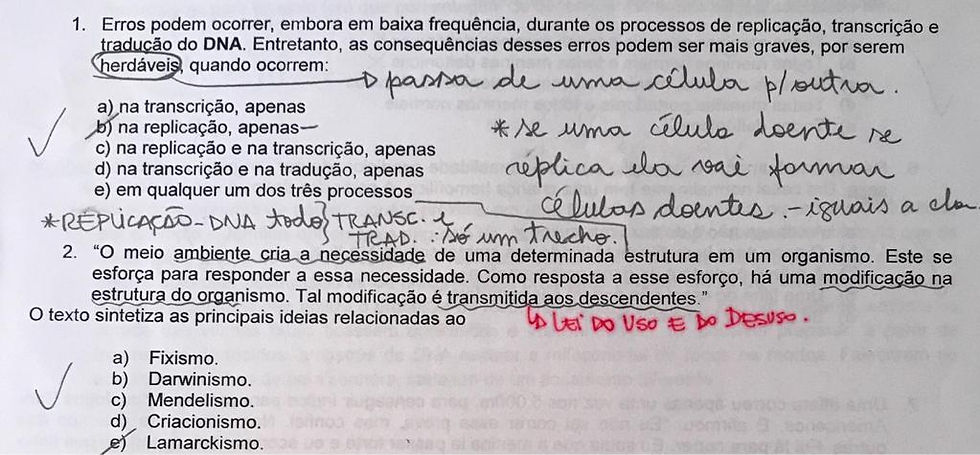 1. Erros podem ocorrer, embora em baixa frequência, durante os processos de replicação, transcrição e
tradução do DNA. Entretanto, as consequências desses erros podem ser mais graves, por serem
herdáveis, quando ocorrem:
→ passa de uma célula p/ outra.
a) na transcrição, apenas
b) na replicação, apenas
c) na replicação e na transcrição, apenas
d) na transcrição e na tradução, apenas
e) em qualquer um dos três processos
* se uma célula doente se
réplica ela vai formar
células doentes. - iguais a ela.
* REPLICAÇÃO - DNA todo} TRANSC. e
TRAD. : Só um trecho.
2. “O meio ambiente cria a necessidade de uma determinada estrutura em um organismo. Este se
esforça para responder a essa necessidade. Como resposta a esse esforço, há uma modificação na
estrutura do organismo. Tal modificação é transmitida aos descendentes.”
O texto sintetiza as principais ideias relacionadas ao
↳ LEI DO USO E DO DESUSO.
a) Fixismo.
b) Darwinismo.
c) Mendelismo.
d) Criacionismo.
e) Lamarckismo.